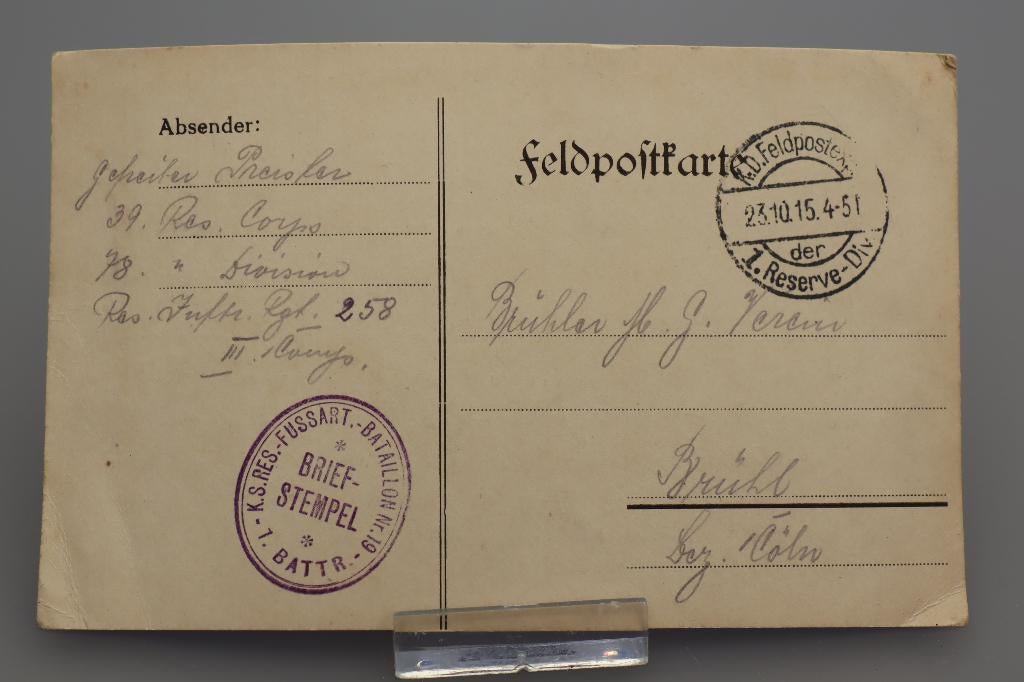 Absender:
Gefreiter Preisler
39. Res. Corps
78. " Division
Res. Inftr. Rgt. 258
III. Comp.
K.S.RES.-FUSSART.-BATAILLON Nr.19
BRIEF-
STEMPEL
- 1. BATTR. -
Feldpostkarte
K.D.Feldpostexp.
23.10.15.4-5
der
1. Reserve-Div.
Brühler M. G. Verein
Brühl
Bez. Cöln